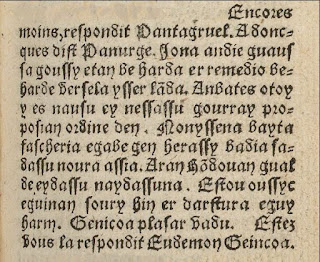 Encores
moins, respondit Pantagruel. Adonc-
ques dist Panurge. Jona andie guaus
sa goussy etan be harda er remedio be-
harde versela ysser lāda. Anbates otoy
y es nausu ey nessassu gourray pro-
posian ordine den. Nonyssena bayta
fascheria egabe gen herassy badia sa-
dassu noura assia. Aran hōdouan gual
de eydassu naydassuna. Estou oussyc
eguinan soury hin er darstura eguy
harm. Genicoa plasar vadu. Estez
vous la respondit Eudemon Geincoa.